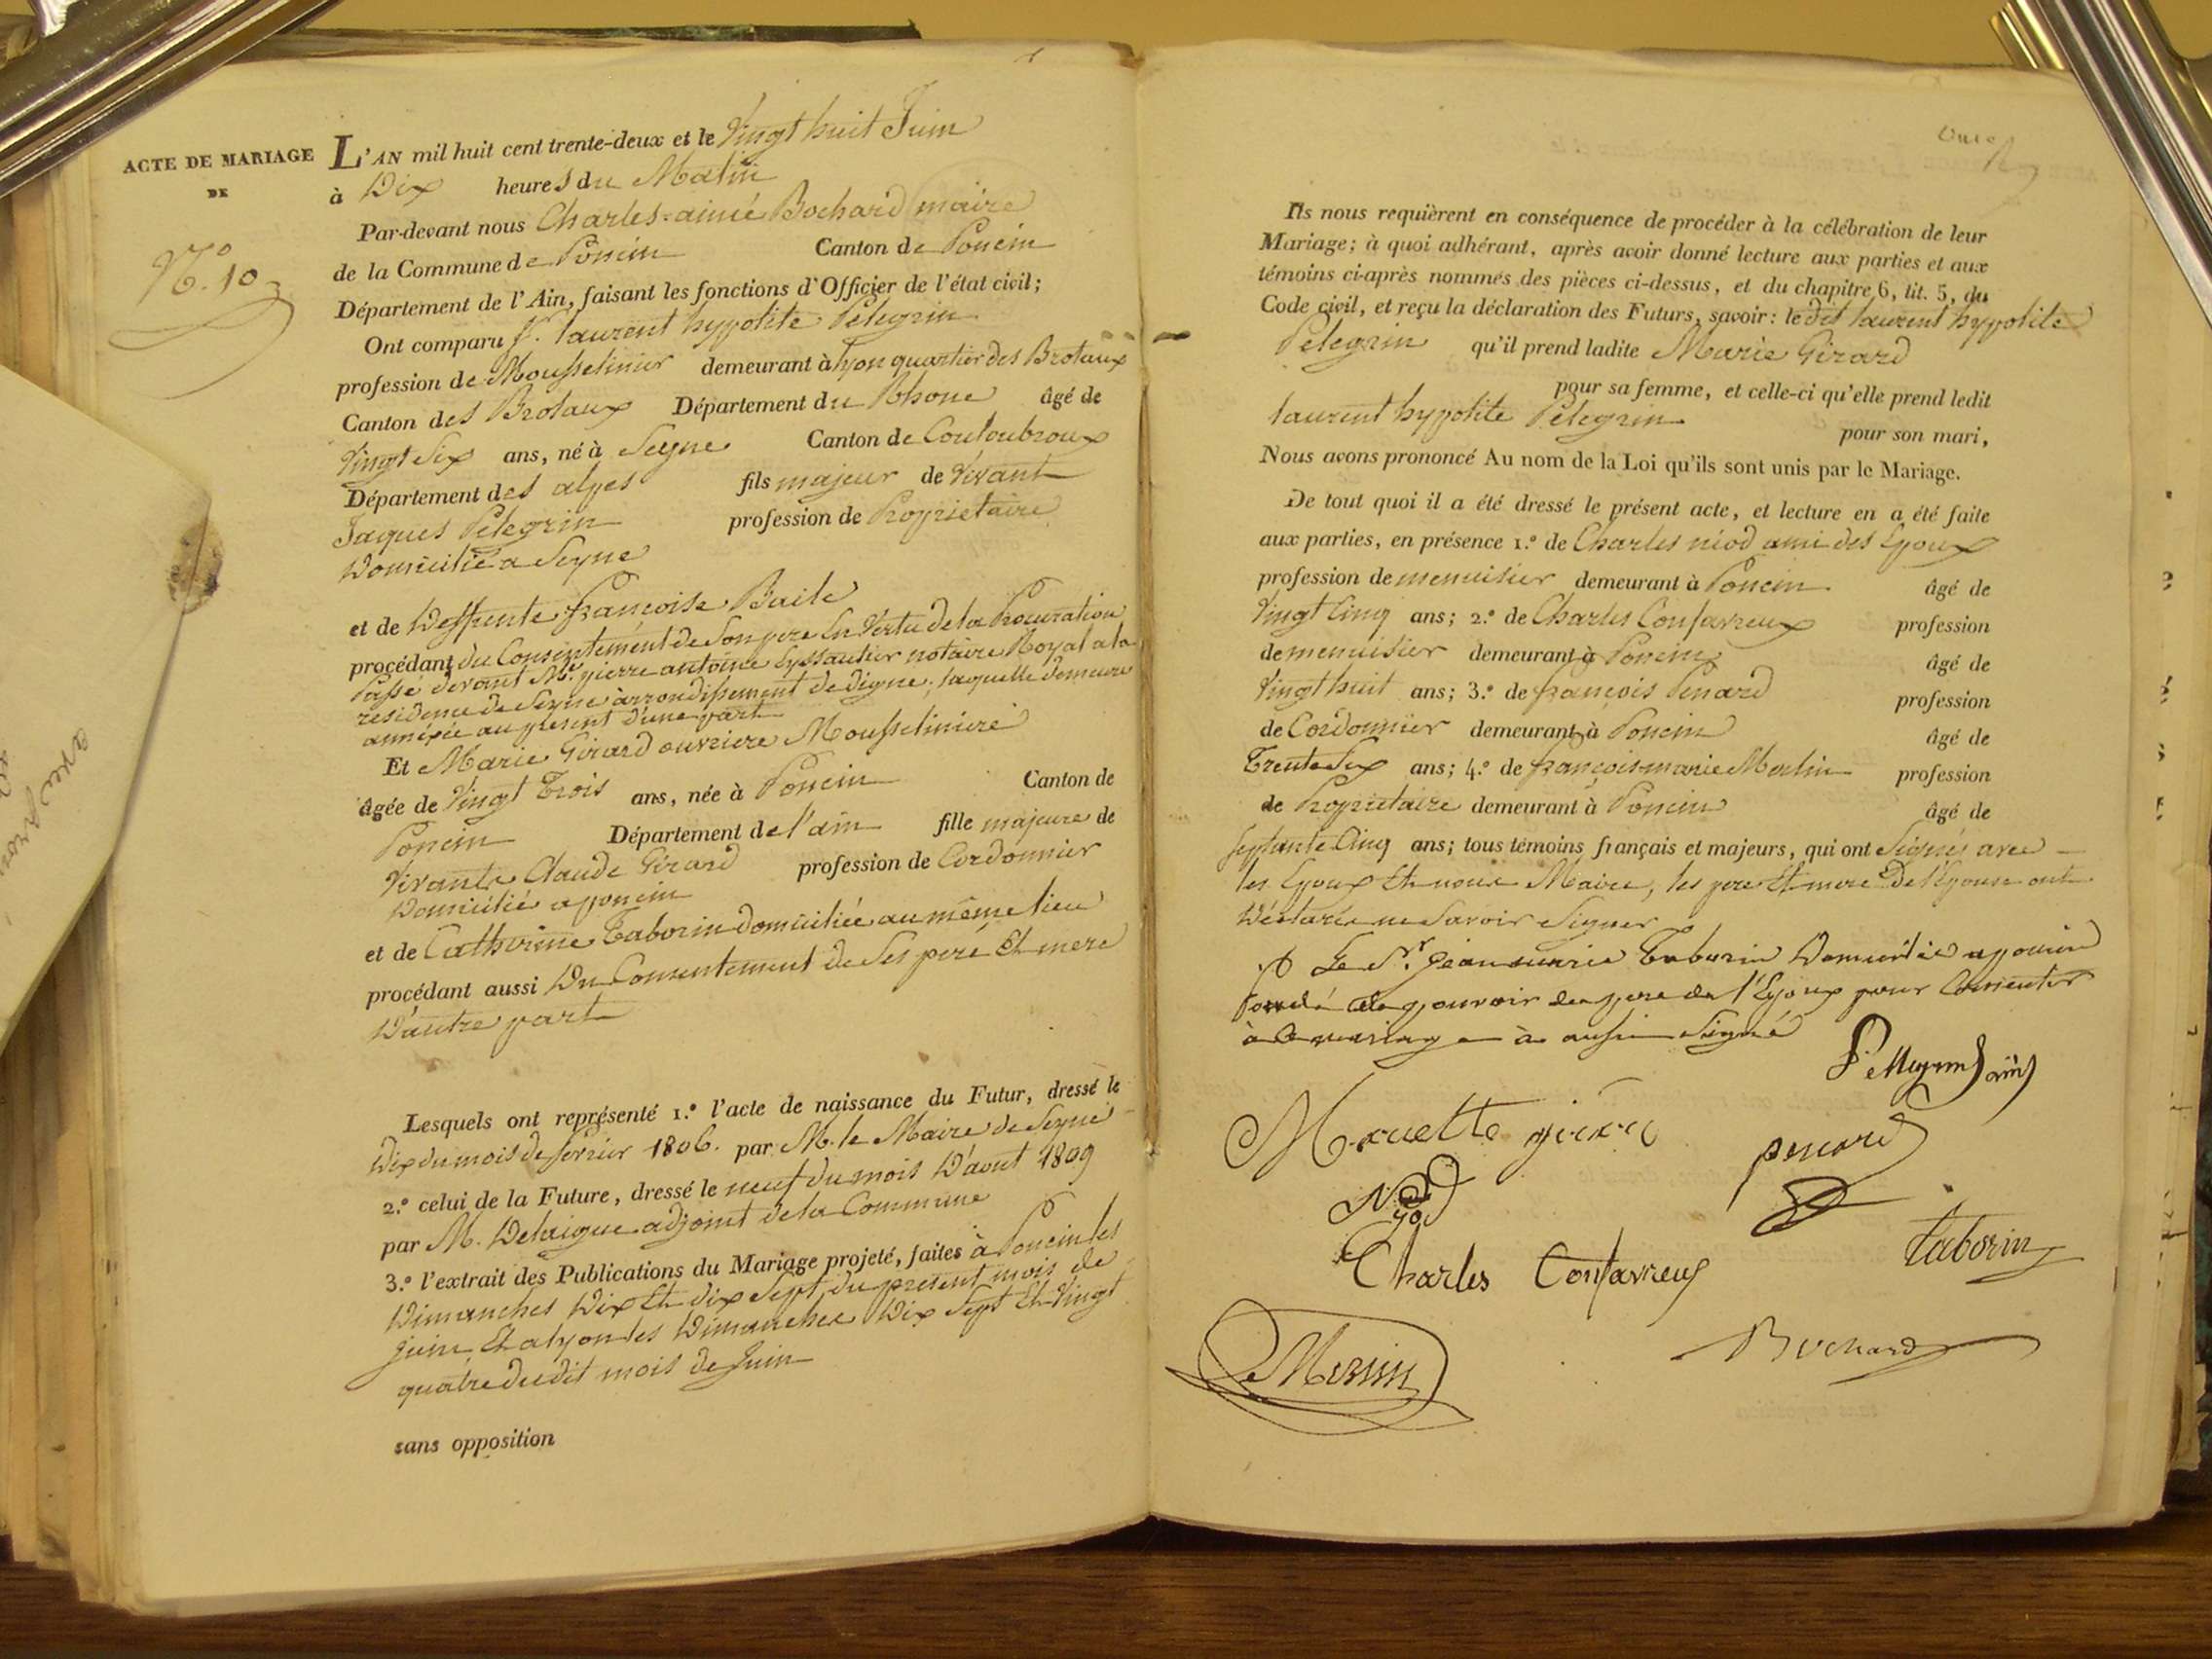 ACTE DE MARIAGE
DE
N.º 10
L'AN mil huit cent trente-deux et le Vingt huit Juin
à Dix heures du Matin
Par-devant nous Charles-aimé Bochard maire
de la Commune de Poncin Canton de Poncin
Département de l'Ain, faisant les fonctions d'Officier de l'état civil;
Ont comparu S. laurent hypolite Pelegrin
profession de Mousselinier demeurant à Lyon quartier des Brotaux
Canton des Brotaux Département du Rhone âgé de
Vingt Six ans, né à Seyne Canton de Couloubroux
Département des alpes fils majeur de vivant
Jaques Pelegrin profession de Proprietaire
Domicilié a Seyne
et de Deffunte françoise Baile
procédant du Consentement de Son pere En Vertu de la Procuration
Passé devant Mr. pierre antoine Eyssautier notaire Royal a la
residence de Seyne arrondissement de digne, laquelle demeure
annexée au present d'une part
Et Marie Girard ouvriere Mousseliniere
âgée de Vingt Trois ans, née à Poncin Canton de
Poncin Département de l'ain fille majeure de
Vivants Claude Girard profession de Cordonnier
Domicilié a poncin
et de Catherine Taborin domiciliée au même lieu
procédant aussi Du Consentement de Ses pere Et mere
D'autre part
Lesquels ont représenté 1.º l'acte de naissance du Futur, dressé le
Dix du mois de fevrier 1806. par M. le Maire de Seyne
2.º celui de la Future, dressé le neuf du mois D'aout 1809
par M. Delaigue adjoint de la Commune
3.º l'extrait des Publications du Mariage projeté, faites à Poncin les
Dimanches Dix Et dix Sept, du present mois de
juin, Et a lyon les Dimanches Dix Sept Et Vingt
quatre dudit mois de Juin
sans opposition
Ils nous requièrent en conséquence de procéder à la célébration de leur
Mariage; à quoi adhérant, après avoir donné lecture aux parties et aux
témoins ci-après nommés des pièces ci-dessus, et du chapitre 6, tit. 5, du
Code civil, et reçu la déclaration des Futurs, savoir: le dit laurent hypolite
Pelegrin qu'il prend ladite Marie Girard
pour sa femme, et celle-ci qu'elle prend ledit
laurent hypolite Pelegrin pour son mari,
Nous avons prononcé Au nom de la Loi qu'ils sont unis par le Mariage.
De tout quoi il a été dressé le présent acte, et lecture en a été faite
aux parties, en présence 1.º de Charles niod ami des Epoux
profession de menuisier demeurant à Poncin âgé de
Vingt Cinq ans; 2.º de Charles Confavreux profession
de menuisier demeurant à Poncin âgé de
Vingt huit ans; 3.º de françois Penard profession
de Cordonnier demeurant à Poncin âgé de
Trente Six ans; 4.º de françois-marie Merlin profession
de Proprietaire demeurant à Poncin âgé de
Septante Cinq ans; tous témoins français et majeurs, qui ont Signés avec
les Epoux Et nous Maire, les pere Et mere De l'Epouse ont
Déclarés ne Savoir Signer
Le Sr. jean marie Taborin Domicilié a poncin
fondé de pouvoir du pere de l'Epoux pour Consentir
à Ce mariage a aussi Signé
Mariette girard
penard
Niod
Charles Confavreux
taborin
Merlin
Bochard